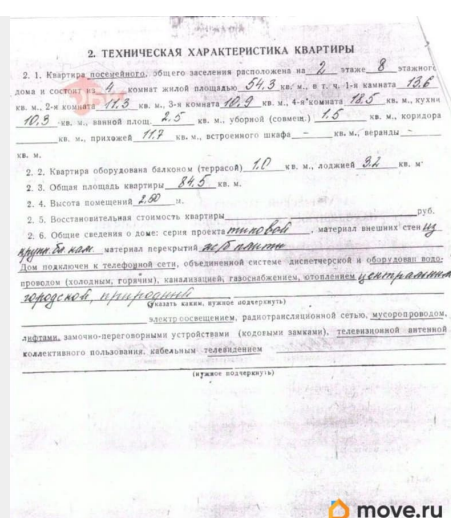 2. ТЕХНИЧЕСКАЯ ХАРАКТЕРИСТИКА КВАРТИРЫ
2. 1. Квартира посемейного, общего заселения расположена на 2 этаже 8 этажного
дома и состоит из 4 комнат жилой площадью 54,3 кв. м., в т. ч. 1-я камната 13,6
кв. м., 2-я комната 11,3 кв. м., 3-я комната 10,9 кв. м., 4-я комната 18,5 кв. м., кухня
10,3 кв. м., ванной площ. 2,5 кв. м., уборной (совмещ.) 1,5 кв. м., коридора
кв. м., прихожей 11,7 кв. м., встроенного шкафа – кв. м., веранды –
кв. м.
2. 2. Квартира оборудована балконом (террасой) 1,0 кв. м., лоджией 3,2 кв. м
2. 3. Общая площадь квартиры 84,5 кв. м.
2. 4. Высота помещений 2.60 м.
2. 5. Восстановительная стоимость квартиры руб.
2. 6. Общие сведения о доме: серия проекта типовой, материал внешних стен из
крупн. бл кам. материал перекрытий ж/б плиты
Дом подключен к телефонной сети, объединенной системе диспетчерской и оборудован водо-
проводом (холодным, горячим), канализацией, газоснабжением, отоплением центральным
городской, природный
(указать каким, нужное подчеркнуть)
электроосвещением, радиотрансляционной сетью, мусоропроводом,
лифтами, замочно-переговорными устройствами (кодовыми замками), телевизионной антенной
коллективного пользования, кабельным телевидением
(нужное подчеркнуть)
move.ru